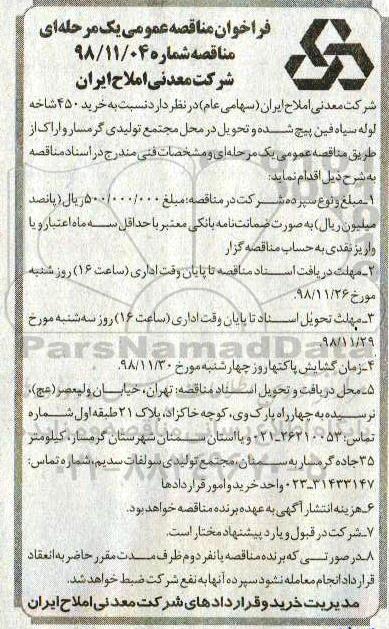 فراخوان مناقصه عمومی یک مرحله‌ای
مناقصه شماره ۹۸/۱۱/۰۴
شرکت معدنی املاح ایران
شرکت معدنی املاح ایران (سهامی عام) در نظر دارد نسبت به خرید ۴۵۰ شاخه
لوله سیاه فین پیچ شده و تحویل در محل مجتمع تولیدی گرمسار و اراک از
طریق مناقصه عمومی یک مرحله‌ای و مشخصات فنی مندرج در اسناد مناقصه
به شرح ذیل اقدام نماید:
۱ـ مبلغ و نوع سپرده شرکت در مناقصه: مبلغ ۵۰۰/۰۰۰/۰۰۰ ریال (پانصد
میلیون ریال) به صورت ضمانت‌نامه بانکی معتبر با حداقل سه ماه اعتبار و یا
واریز نقدی به حساب مناقصه گزار
۲ـ مهلت دریافت اسناد مناقصه تا پایان وقت اداری (ساعت ۱۶) روز شنبه
مورخ ۹۸/۱۱/۲۶.
۳ـ مهلت تحویل اسناد تا پایان وقت اداری (ساعت ۱۶) روز سه‌شنبه مورخ
۹۸/۱۱/۲۹.
۴ـ زمان گشایش پاکتها روز چهارشنبه مورخ ۹۸/۱۱/۳۰.
۵ـ محل دریافت و تحویل اسناد مناقصه: تهران، خیابان ولیعصر (عج)،
نرسیده به چهارراه پارک وی، کوچه خاکزاد، پلاک ۲۱ طبقه اول شماره
تماس: ۲۶۲۱۰۰۵۳-۰۲۱ و یا استان سمنان شهرستان گرمسار، کیلومتر
۳۵ جاده گرمسار به سمنان، مجتمع تولیدی سولفات سدیم، شماره تماس:
۳۱۴۳۳۱۴۷-۰۲۳ واحد خرید و امور قراردادها
۶ـ هزینه انتشار آگهی به عهده برنده مناقصه خواهد بود.
۷ـ شرکت در قبول و یا رد پیشنهاد مختار است.
۸ـ در صورتی که برنده مناقصه یا نفر دوم ظرف مدت مقرر حاضر به انعقاد
قرارداد انجام معامله نشود سپرده آنها به نفع شرکت ضبط خواهد شد.
مدیریت خرید و قراردادهای شرکت معدنی املاح ایران
ParsNamadData